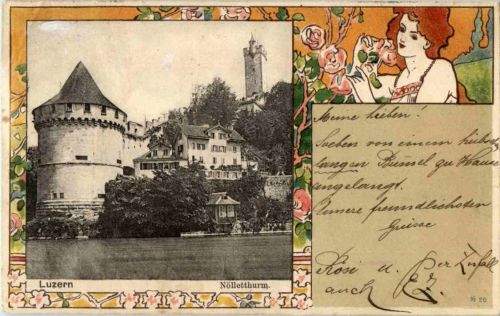 Luzern
Nölletthurm.
Meine lieben!
Soeben von einem
langen Bümel zu Hause
angelangt.
Unsere freundlichsten
Grüsse
Rösi u. Der Zufall
auch
N 20